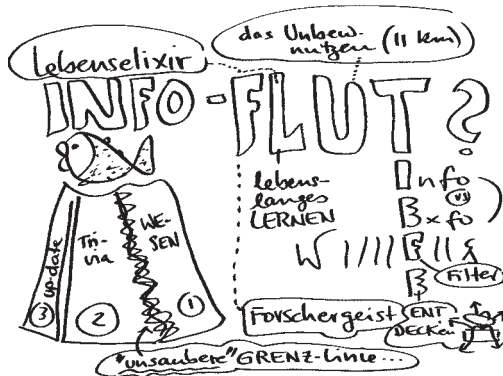 das Unbew-
nutzen (11 km)
Lebenselixir
INFO-FLUT?
lebens-
langes
LERNEN
Info
vs
Exfo
Filter
up-date
Tri-
via
WE-
SEN
3
2
1
Forschergeist
ENT
DECKen
"unsaubere" GRENZ-Linie...